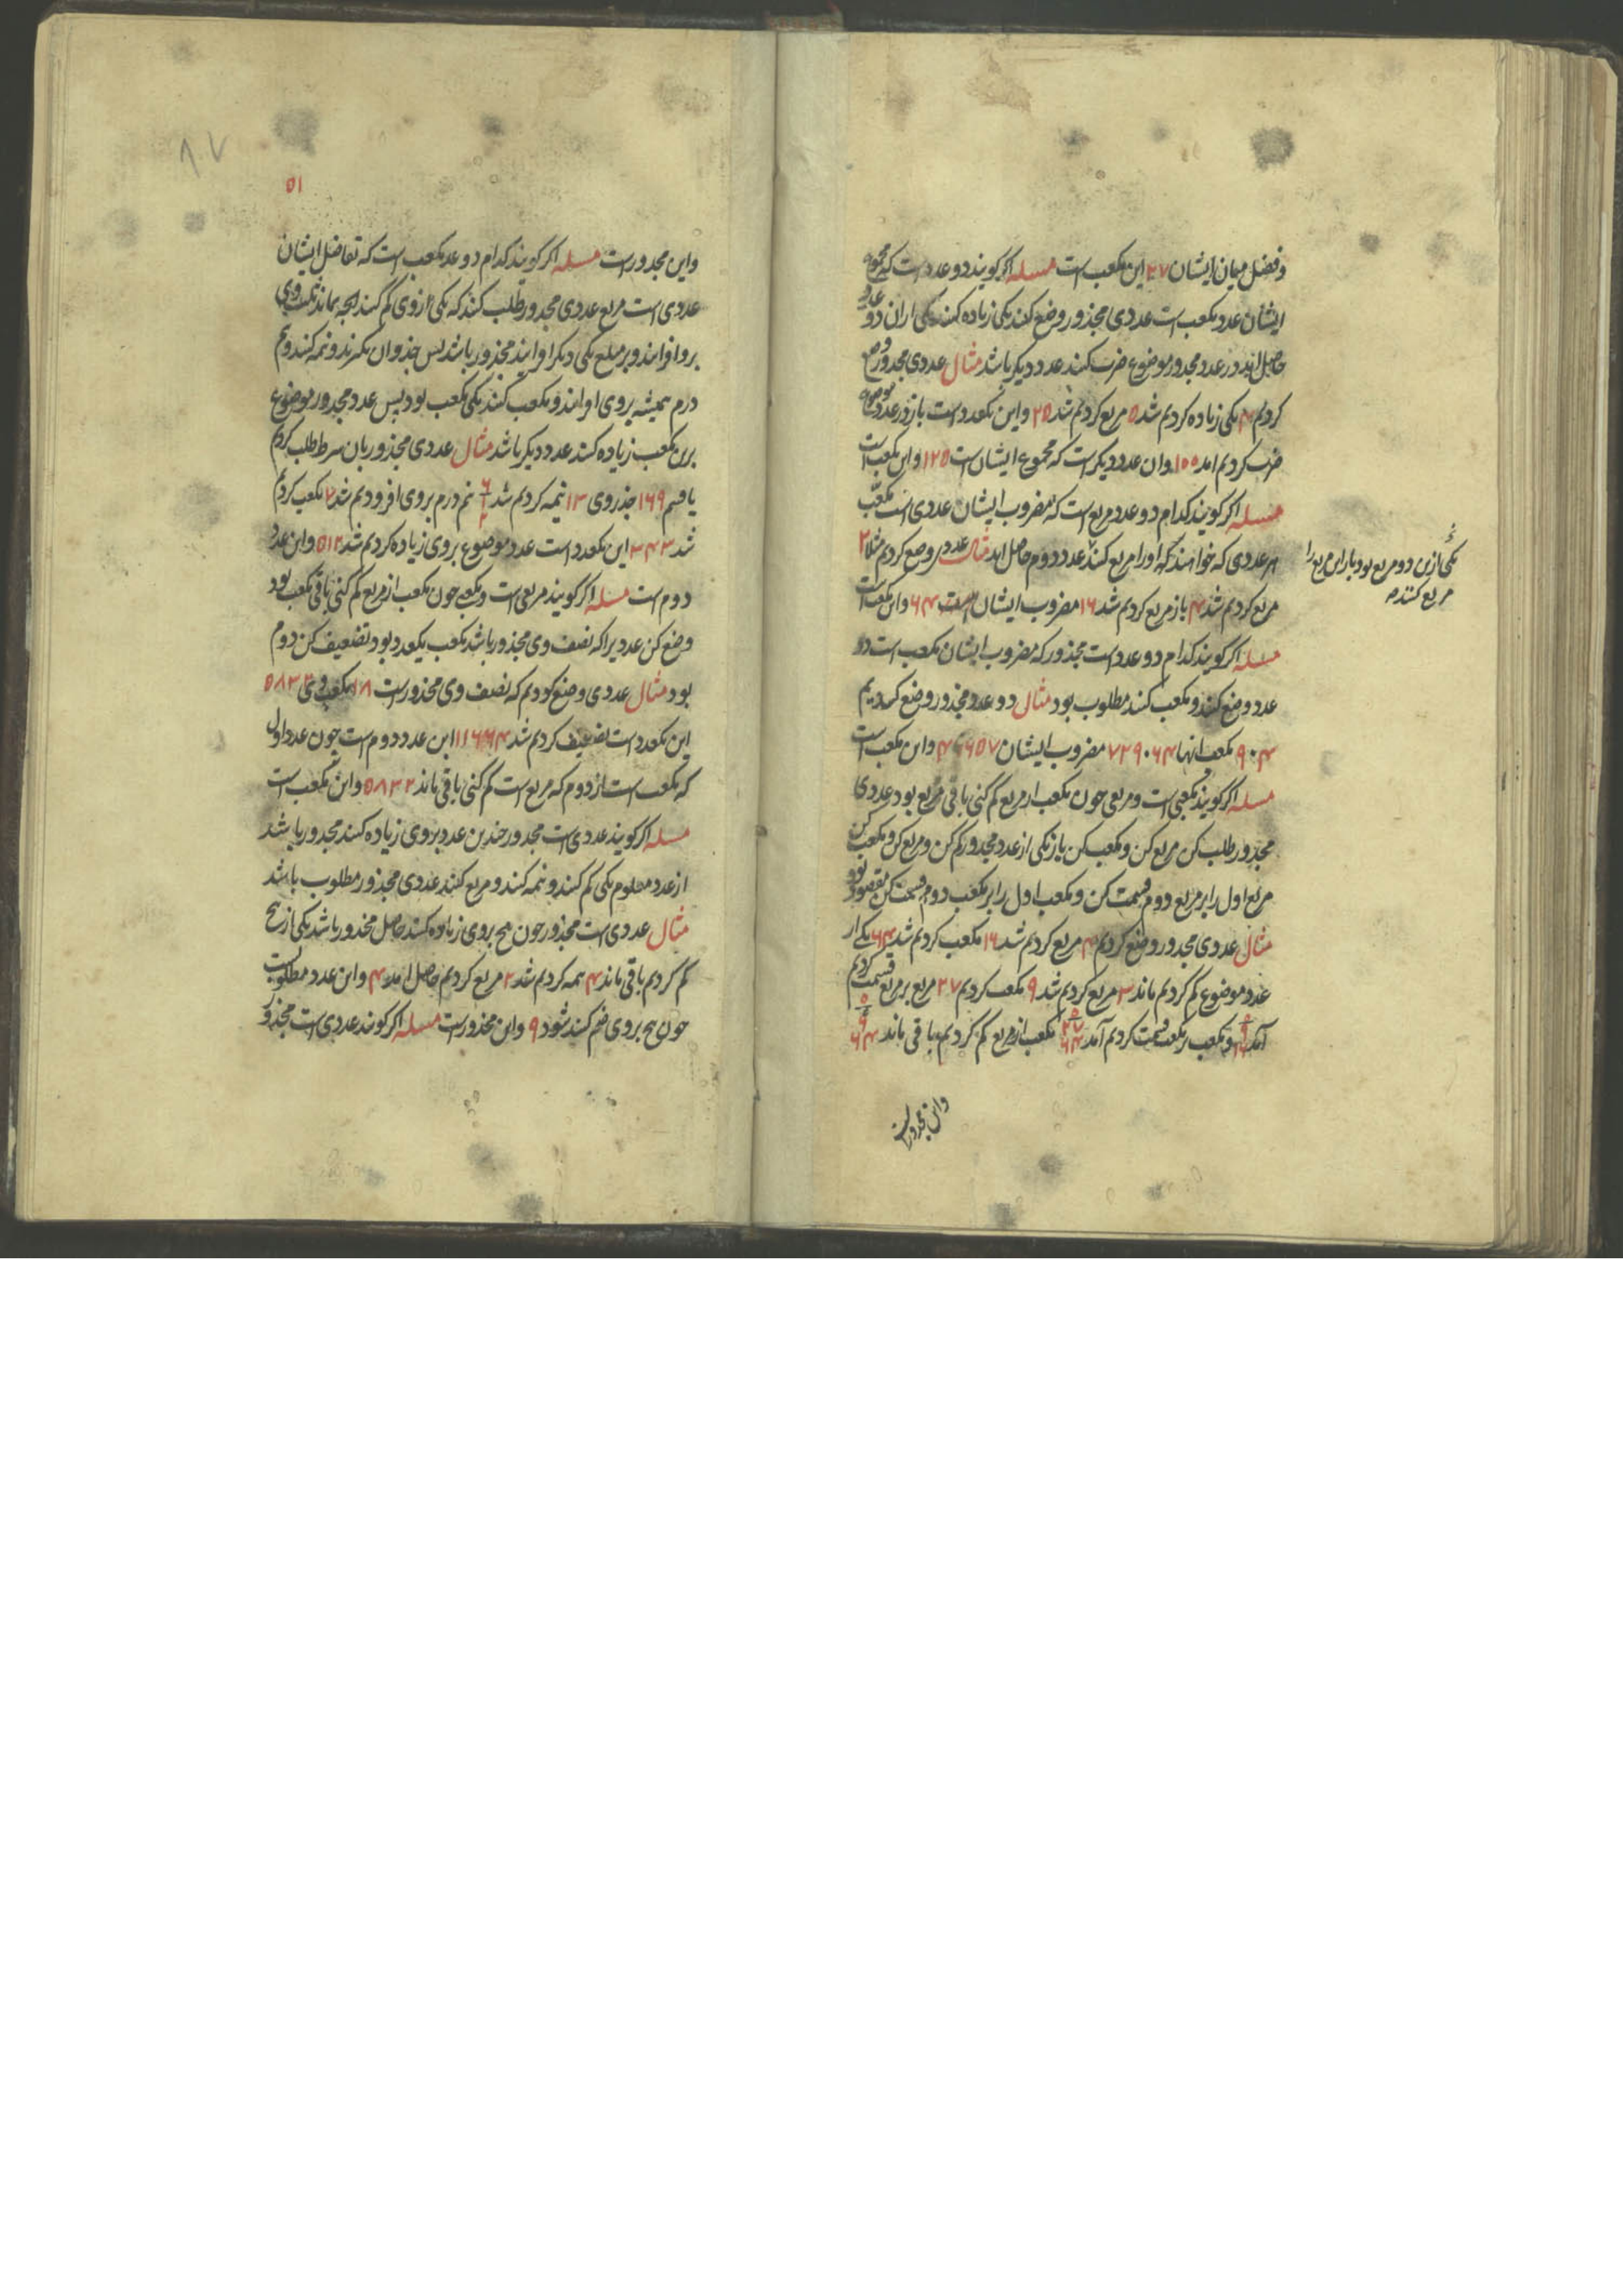 وفضل میان ایشان ۲۷ این مکعب است مسله اکر کویند دو عدد است که مجموع
ایشان عدد مکعب است عددی مجذور وضع کنند یکی زیاده کنند یکی ازان دو عدد
حاصل اید در عدد مجذور موضوع ضرب کنند عدد دیکر باشد مثال عددی مجذور وضع
کردیم ۴ یکی زیاده کردیم شد ۵ مربع کردیم شد ۲۵ و این یکعدد است باز در عدد موضوع
ضرب کردیم امد ۱۰۰ وان عدد دیکر است که مجموع ایشان است ۱۲۵ واین مکعب است
مسله اکر کویند کدام دو عدد مربع است که مضروب ایشان عددی است مکعب
هر عددی که خواهند که اورا مربع کنند عدد دوم حاصل اید مثال عددی وضع کردیم مثلا ۲
مربع کردیم شد ۴ باز مربع کردیم شد ۱۶ مضروب ایشان است ۶۴ واین مکعب است
مسله اکر کویند کدام دو عدد است مجذور که مضروب ایشان مکعب است دو
عدد وضع کنند و مکعب کنند مطلوب بود مثال دو عدد مجذور وضع کردیم
۴۰۹ مکعب انها ۶۴۰۷۲۹ مضروب ایشان ۴۶۶۵۷ واین مکعب است
مسله اکر کویند مکعبی است ومربعی جون مکعب از مربع کم کنی باقی مربع بود عددی
مجذور طلب کن مربع کن ومکعب کن باز یکی از عدد مجذور کم کن ومربع کن ومکعب کن
مربع اول را بر مربع دوم قسمت کن ومکعب اول را بر مکعب دوم قسمت کن مقصود بود
مثال عددی مجذور وضع کردیم ۴ مربع کردیم شد ۱۶ مکعب کردیم شد ۶۴ یکی از
عدد موضوع کم کردیم ماند ۳ مربع کردیم شد ۹ مکعب کردیم ۲۷ مربع بر مربع قسمت کردیم
آمد ومکعب بر مکعب قسمت کردیم آمد مکعب از مربع کم کردیم باقی ماند
یکی ازین دو مربع بود بار این مربع را
مربع کنند م
واین مجذور است
۸۰۷
۵۱
واین مجذور است مسله اکر کویند کدام دو عدد مکعب است که تفاضل ایشان
عددی است مربع عددی مجذور طلب کنند که یکی ازوی کم کنند انجه بماند ثلث وی
برو افزایند وبر مبلغ یکی دیکر افزایند مجذور باشد پس جذر وان بکیرند ونیمه کنند ونیم
درم همیشه بروی افزایند ومکعب کنند یکی مکعب بود پس عدد مجذور موضوع
برین مکعب زیاده کنند عدد دیکر باشد مثال عددی مجذور بان شرط طلب کردیم
یافتیم ۱۶۹ جذر وی ۱۳ نیمه کردیم شد نیم درم بروی افزودیم شد ۷ مکعب کردیم
شد ۳۴۳ این یکعدد است عدد موضوع بروی زیاده کردیم شد ۵۱۲ واین عدد
دوم است مسله اکر کویند مربعی است ومکعبی جون مکعب از مربع کم کنی باقی مکعب بود
وضع کن عددیرا که نصف وی مجذور باشد مکعب یکعدد بود تضعیف کن دوم
بود مثال عددی وضع کردیم که نصف وی مجذور است ۱۸ مکعب وی ۵۸۳۲
این یکعدد است تضعیف کردیم شد ۱۱۶۶۴ این عدد دوم است چون عدد اول
که مکعب است از دوم که مربع است کم کنی باقی ماند ۵۸۳۲ واین مکعب است
مسله اکر کویند عددی است مجذور جندین عدد بروی زیاده کنند مجذور باشد
از عدد معلوم یکی کم کنند ونیمه کنند ومربع کنند عددی مجذور مطلوب باشد
مثال عددی است مجذور جون پنج بروی زیاده کنند حاصل مجذور باشد یکی از پنج
کم کردیم باقی ماند ۴ نیمه کردیم شد ۲ مربع کردیم حاصل امد ۴ واین عدد مطلوبست
جون پنج بروی ضم کنند شود ۹ واین مجذور است مسله اکر کویند عددی است مجذور